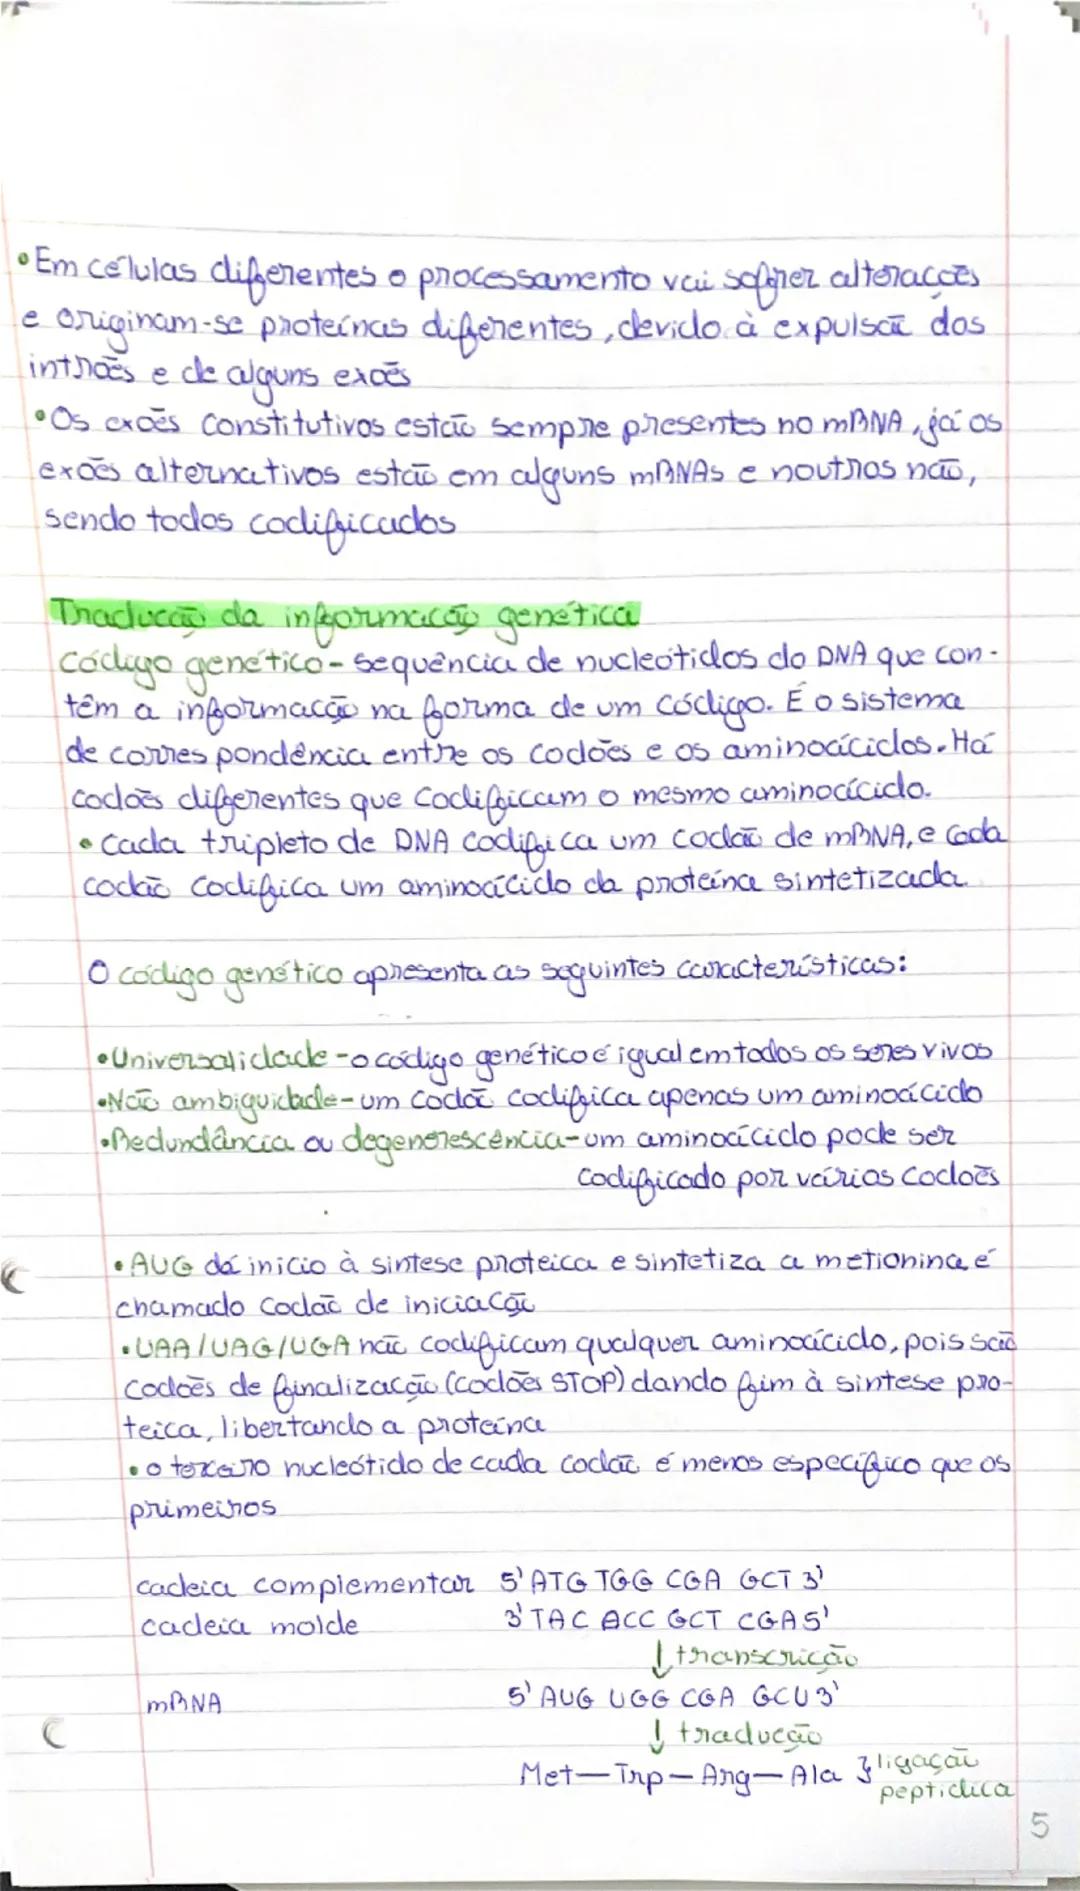 • Em células diferentes o processamento vai sofrer alterações
e originam-se proteínas diferentes, devido à expulsão dos
intrões e de alguns exões
• Os exões constitutivos estão sempre presentes no mRNA, já os
exões alternativos estão em alguns mRNAs e noutros não,
sendo todos codificados
Tradução da informação genética
Código genético - sequência de nucleótidos do DNA que con-
têm a informação na forma de um código. É o sistema
de correspondência entre os codões e os aminoácidos. Há
codões diferentes que codificam o mesmo aminoácido.
• Cada tripleto de DNA codifica um codão de mRNA, e cada
codão codifica um aminoácido da proteína sintetizada.
O código genético apresenta as seguintes características:
• Universalidade - o código genético é igual em todos os seres vivos
• Não ambiguidade - um codão codifica apenas um aminoácido
• Redundância ou degenerescência - um aminoácido pode ser
codificado por vários codões
• AUG dá inicio à sintese proteica e sintetiza a metionina, é
chamado codão de iniciação
• UAA/UAG/UGA não codificam qualquer aminoácido, pois são
codões de finalização (codões STOP) dando fim à sintese pro-
teica, libertando a proteína
• o terceiro nucleótido de cada codão é menos específico que os
primeiros
cadeia complementar 5' ATG TGG CGA GCT 3'
cadeia molde 3' TAC ACC GCT CGA 5'
↓ transcrição
mRNA 5' AUG UGG CGA GCU 3'
↓ tradução
Met — Trp — Arg — Ala } ligação
peptidica
5